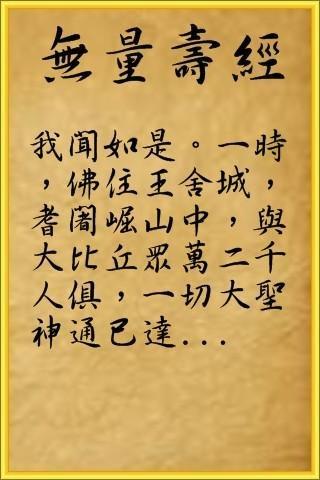 無量壽經
我聞如是。一時
，佛住王舍城，
耆闍崛山中，與
大比丘眾萬二千
人俱，一切大聖
神通已達...